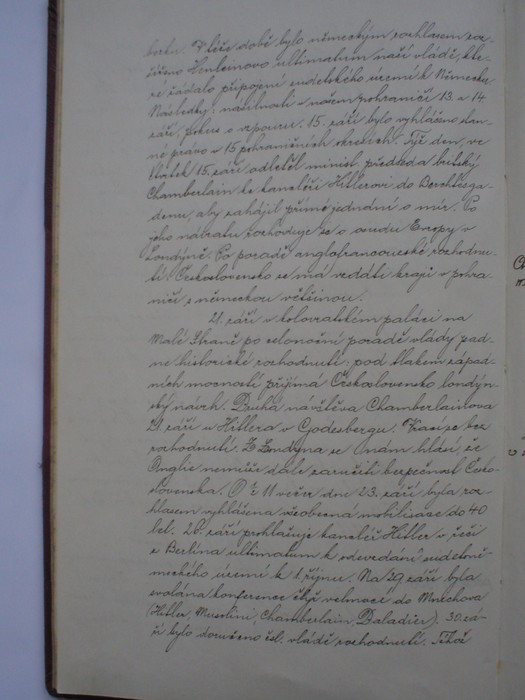 berku. V téže době bylo německým rozhlasem roz-
šířeno Henleinovo ultimatum naší vládě, kte-
ré žádalo připojení sudetského území k Německu
Následky: násilnosti v našem pohraničí 13. a 14
září, pokus o vzpouru. 15. září bylo vyhlášeno stan-
né právo v 15 pohraničních okresích. Týž den, ve
čtvrtek 15. září, odletěl minist. předseda britský
Chamberlain ke kancléři Hitlerovi do Berchtesga-
denu, aby zahájil přímé jednání o mír. Po
jeho návratu rozhoduje se o osudu Evropy v
Londýně. Po poradě anglofrancouzské rozhodnu-
tí: Československo se má vzdáti krajů v pohra-
ničí s německou většinou.
21. září v kolovratském paláci na
Malé Straně po celonoční poradě vlády pad-
ne historické rozhodnutí: pod tlakem západ-
ních mocností přijímá Československo londýn-
ský návrh. Druhá návštěva Chamberlainova
23. září u Hitlera v Godesbergu. Krasi se bez
rozhodnutí. Z Londýna se nám hlásí, že
Anglie nemůže dále zaručiti bezpečnost Česko-
slovenska. O ¾ 11 večer dne 23. září byla roz-
hlasem vyhlášena všeobecná mobilisace do 40
let. 26. září prohlašuje kancléř Hitler v řeči
z Berlína ultimatum k odevzdání sudetoně-
meckého území k 1. říjnu. Na 29. září byla
svolána konference čtyř velmocí do Mnichova
(Hitler, Musolini, Chamberlain, Daladier). 30. zá-
ří bylo doručeno čsl. vládě rozhodnutí. Tíha